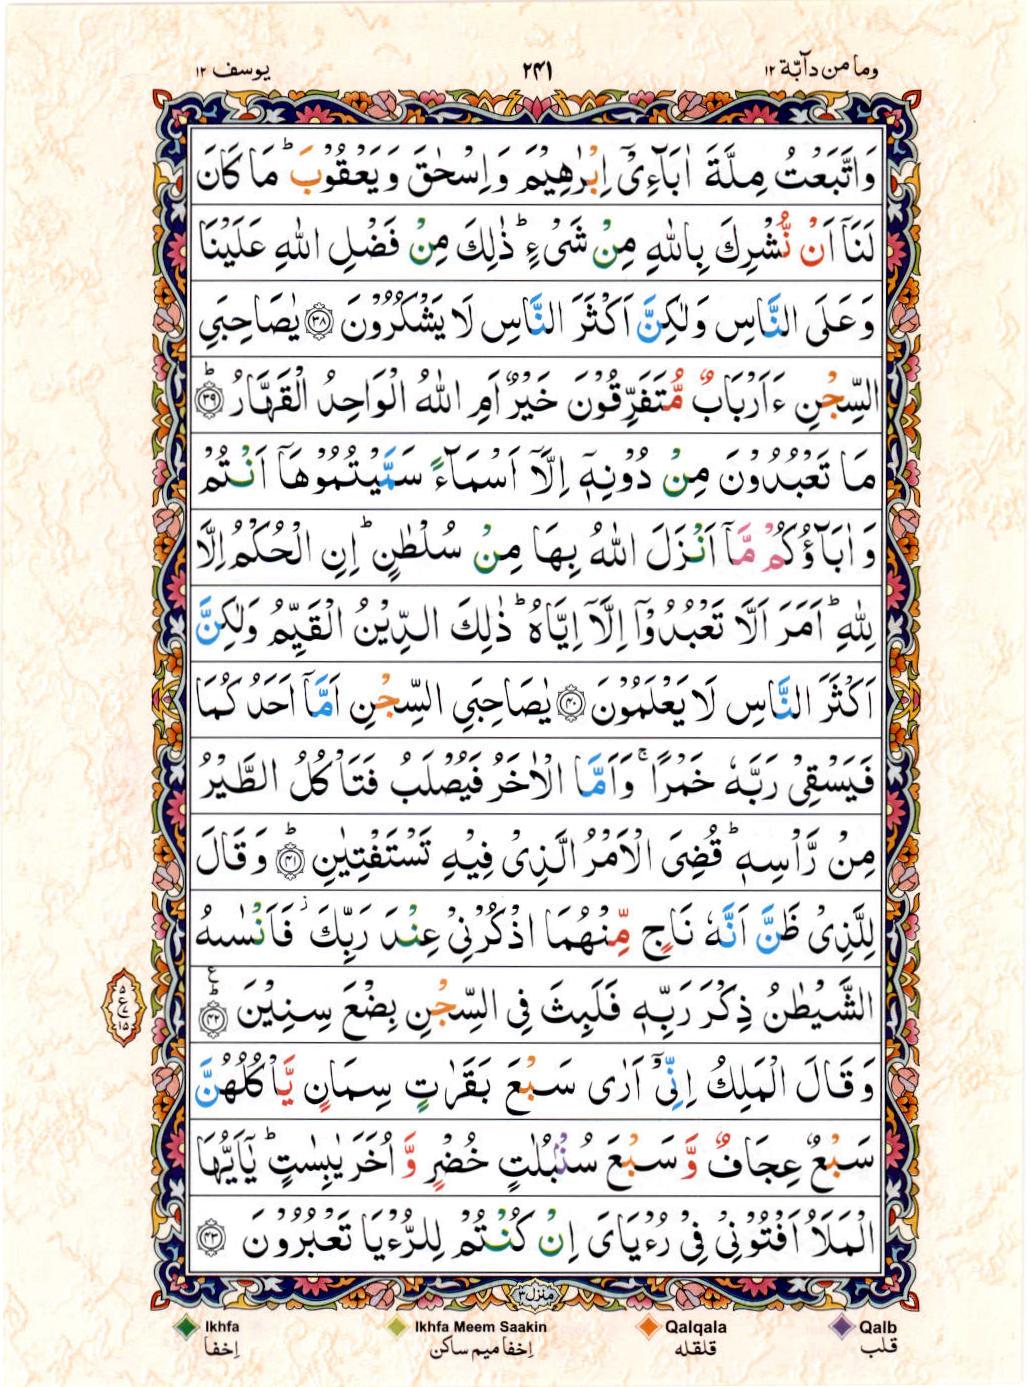 وما من دآبّة ۱۲
۲۴۱
یوسف ۱۲
وَاتَّبَعْتُ مِلَّةَ اٰبَآءِیْۤ اِبْرٰهِیْمَ وَاِسْحٰقَ وَیَعْقُوْبَ ؕ مَا كَانَ
لَنَاۤ اَنْ نُّشْرِكَ بِاللّٰهِ مِنْ شَیْءٍ ؕ ذٰلِكَ مِنْ فَضْلِ اللّٰهِ عَلَیْنَا
وَعَلَی النَّاسِ وَلٰكِنَّ اَكْثَرَ النَّاسِ لَا یَشْكُرُوْنَ ﴿۳۸﴾ یٰصَاحِبَیِ
السِّجْنِ ءَاَرْبَابٌ مُّتَفَرِّقُوْنَ خَیْرٌ اَمِ اللّٰهُ الْوَاحِدُ الْقَهَّارُ ﴿۳۹﴾ؕ
مَا تَعْبُدُوْنَ مِنْ دُوْنِهٖۤ اِلَّاۤ اَسْمَآءً سَمَّیْتُمُوْهَاۤ اَنْتُمْ
وَاٰبَآؤُكُمْ مَّاۤ اَنْزَلَ اللّٰهُ بِهَا مِنْ سُلْطٰنٍ ؕ اِنِ الْحُكْمُ اِلَّا
لِلّٰهِ ؕ اَمَرَ اَلَّا تَعْبُدُوْۤا اِلَّاۤ اِیَّاهُ ؕ ذٰلِكَ الدِّیْنُ الْقَیِّمُ وَلٰكِنَّ
اَكْثَرَ النَّاسِ لَا یَعْلَمُوْنَ ﴿۴۰﴾ یٰصَاحِبَیِ السِّجْنِ اَمَّاۤ اَحَدُكُمَا
فَیَسْقِیْ رَبَّهٗ خَمْرًا ۚ وَاَمَّا الْاٰخَرُ فَیُصْلَبُ فَتَاْكُلُ الطَّیْرُ
مِنْ رَّاْسِهٖ ؕ قُضِیَ الْاَمْرُ الَّذِیْ فِیْهِ تَسْتَفْتِیٰنِ ﴿۴۱﴾ؕ وَقَالَ
لِلَّذِیْ ظَنَّ اَنَّهٗ نَاجٍ مِّنْهُمَا اذْكُرْنِیْ عِنْدَ رَبِّكَ ؗ فَاَنْسٰىهُ
الشَّیْطٰنُ ذِكْرَ رَبِّهٖ فَلَبِثَ فِی السِّجْنِ بِضْعَ سِنِیْنَ ﴿۴۲﴾ؕ ع
۵
ع
۷
۱۵
وَقَالَ الْمَلِكُ اِنِّیْۤ اَرٰی سَبْعَ بَقَرٰتٍ سِمَانٍ یَّاْكُلُهُنَّ
سَبْعٌ عِجَافٌ وَّسَبْعَ سُنْۢبُلٰتٍ خُضْرٍ وَّاُخَرَ یٰبِسٰتٍ ؕ یٰۤاَیُّهَا
الْمَلَاُ اَفْتُوْنِیْ فِیْ رُءْیَایَ اِنْ كُنْتُمْ لِلرُّءْیَا تَعْبُرُوْنَ ﴿۴۳﴾
منزل ۳
Ikhfa
اِخفا
Ikhfa Meem Saakin
اِخفا میم ساکن
Qalqala
قلقله
Qalb
قلب